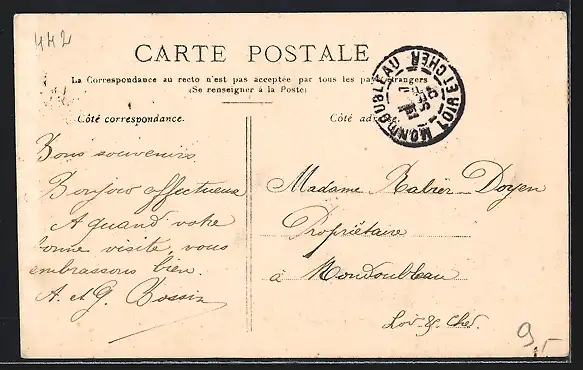 442
CARTE POSTALE
La Correspondance au recto n'est pas acceptée par tous les pays étrangers
(Se renseigner à la Poste)
Côté correspondance.
Côté adresse
MONDOUBLEAU
LOIR ET CHER
Bons souvenirs
Bonjour affectueux
A quand votre
bonne visite, vous
embrassons bien.
A. et G. Rossin
Madame Rabier-Doyen
Propriétaire
à Mondoubleau
Loir-&-Cher.